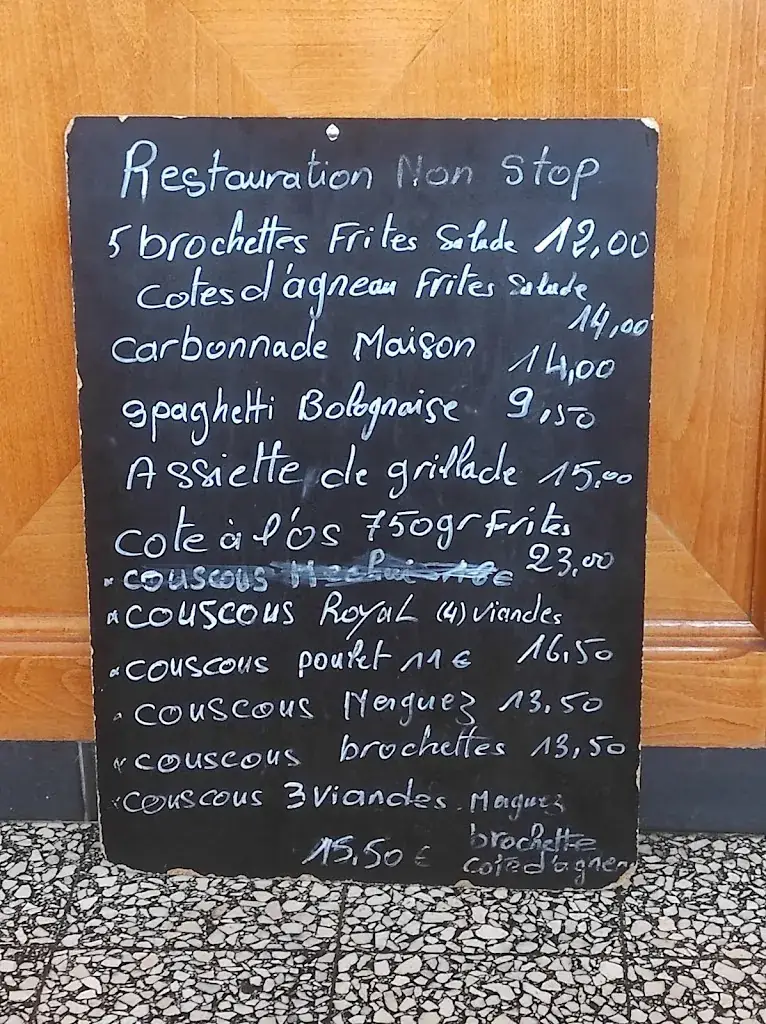 Restauration Non Stop
5 brochettes Frites Salade 12,00
Cotes d'agneau Frites Salade
14,00
Carbonnade Maison 14,00
Spaghetti Bolognaise 9,50
Assiette de grillade 15,00
Cote à l'os 750gr Frites
23,00
couscous
couscous Royal (4) viandes
16,50
couscous poulet 11 €
couscous Merguez 13,50
couscous brochettes 13,50
couscous 3 viandes. Merguez
brochette
15,50 € cote d'agneau